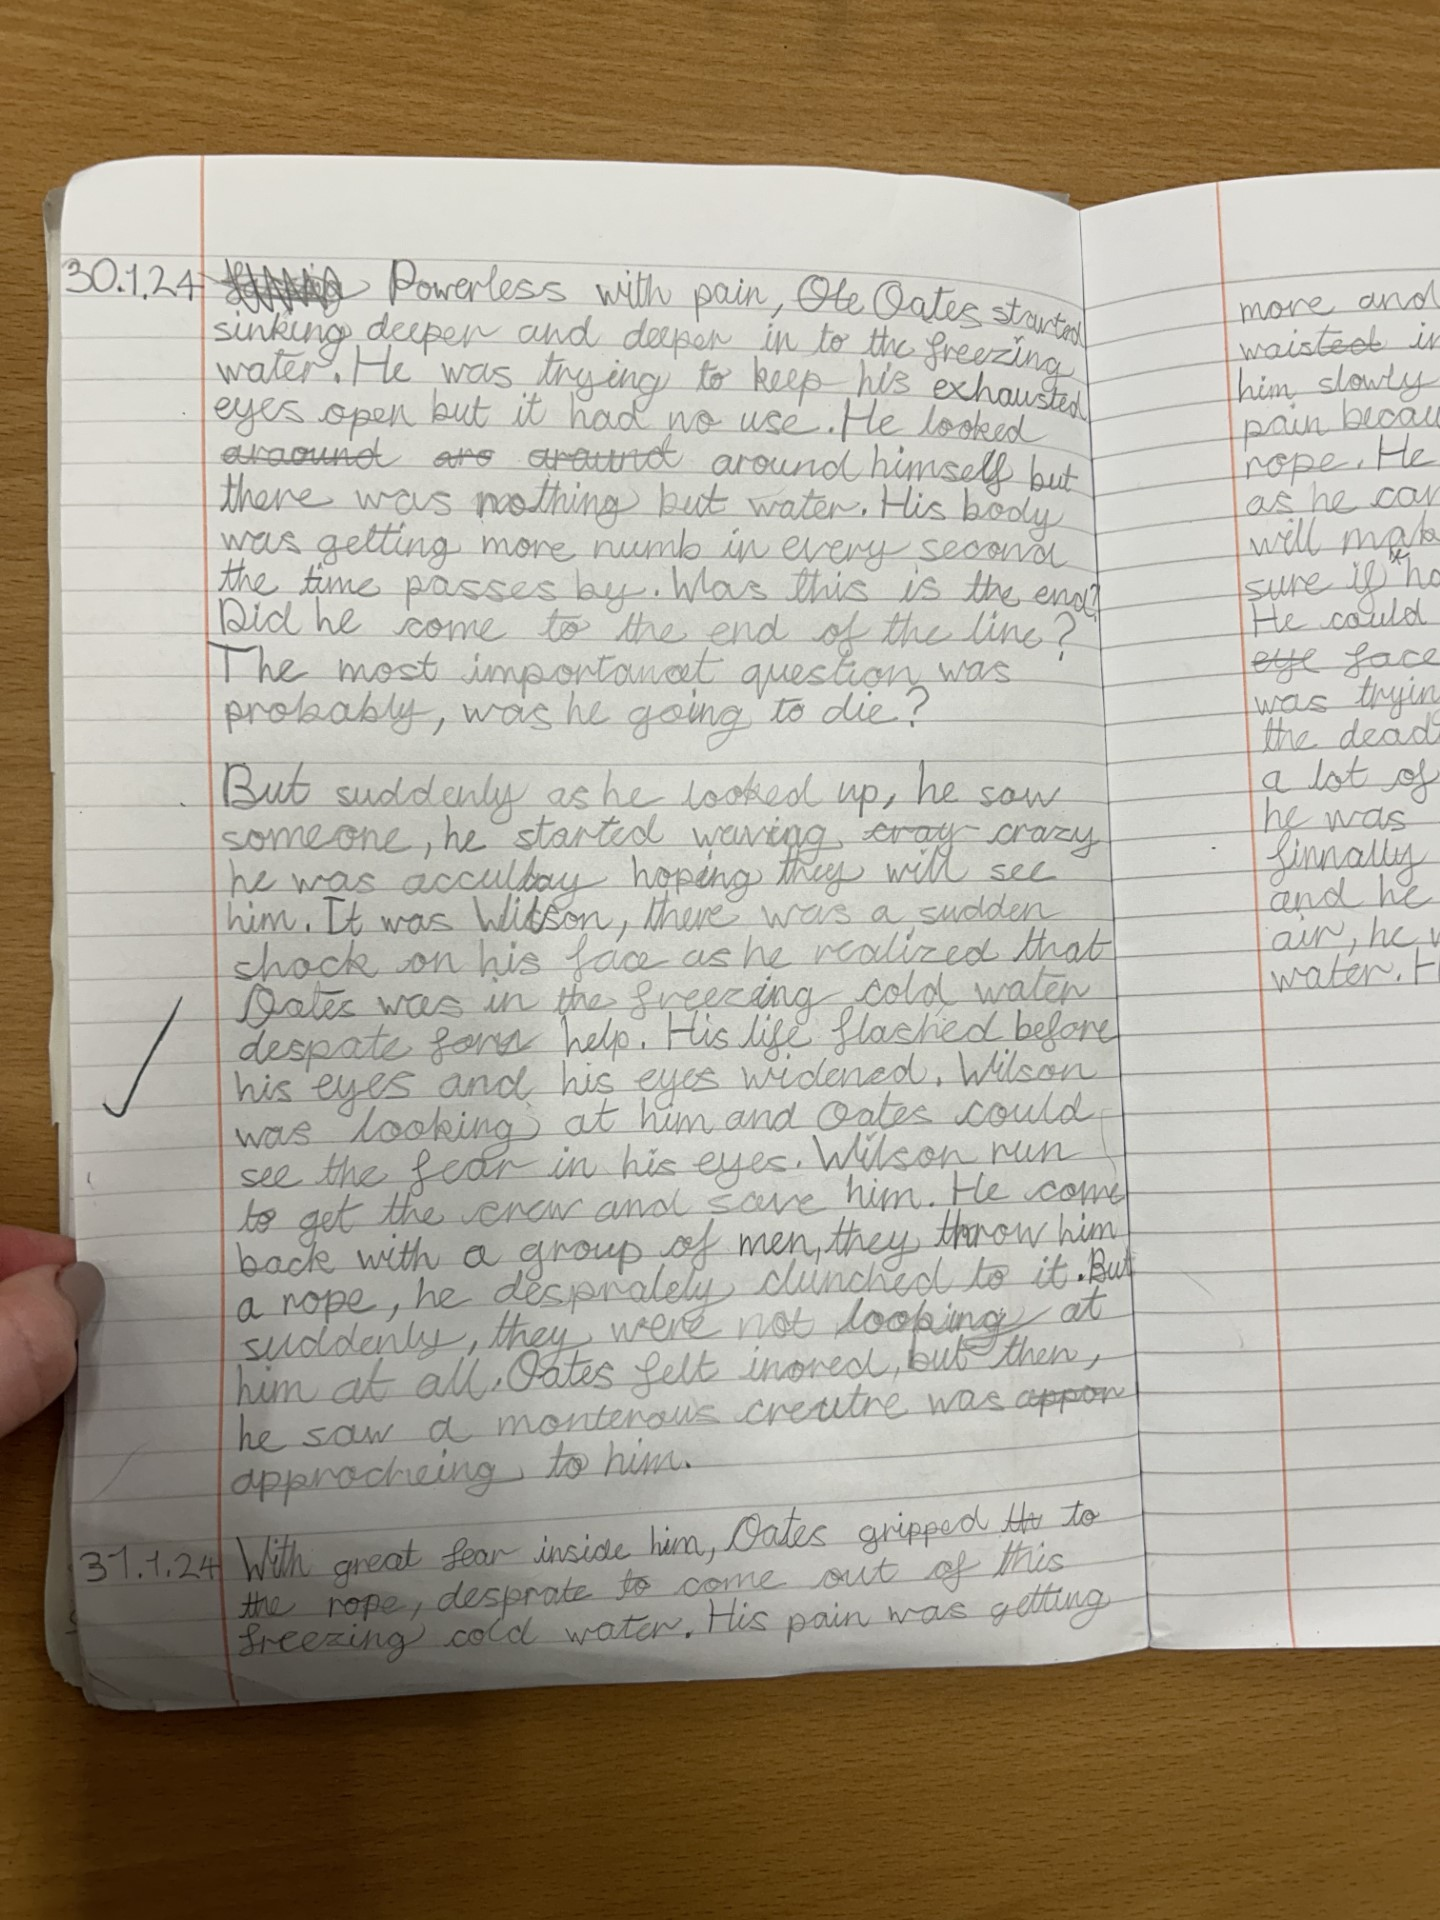 30.1.24 Powerless with pain, Ote Oates started
sinking deeper and deeper in to the freezing
water. He was trying to keep his exhausted
eyes open but it had no use. He looked
araound aro araund around himself but
there was nothing but water. His body
was getting more numb in every second
the time passes by. Was this is the end?
Did he come to the end of the line?
The most importanat question was
probably, was he going to die?
But suddenly as he looked up, he saw
someone, he started waving cray crazy
he was accullay hoping they will see
him. It was Wilson, there was a sudden
shock on his face as he realized that
Oates was in the freezing cold water
despate for help. His life flashed before
his eyes and his eyes widened. Wilson
was looking at him and Oates could
see the fear in his eyes. Wilson run
to get the crew and save him. He come
back with a group of men, they throw him
a rope, he despralely clunched to it. But
suddenly, they were not looking at
him at all. Oates felt inored, but then,
he saw a monterous creutre was appor
approcheing to him.
31.1.24 With great fear inside him, Oates gripped th to
the rope, desprate to come out of this
freezing cold water. His pain was getting
more and
waisted in
him slowly
pain becau
rope. He
as he can
will mak
sure if ho
He could
eye face
was tryin
the dead
a lot of
he was
finnally
and he
air, he w
water. H